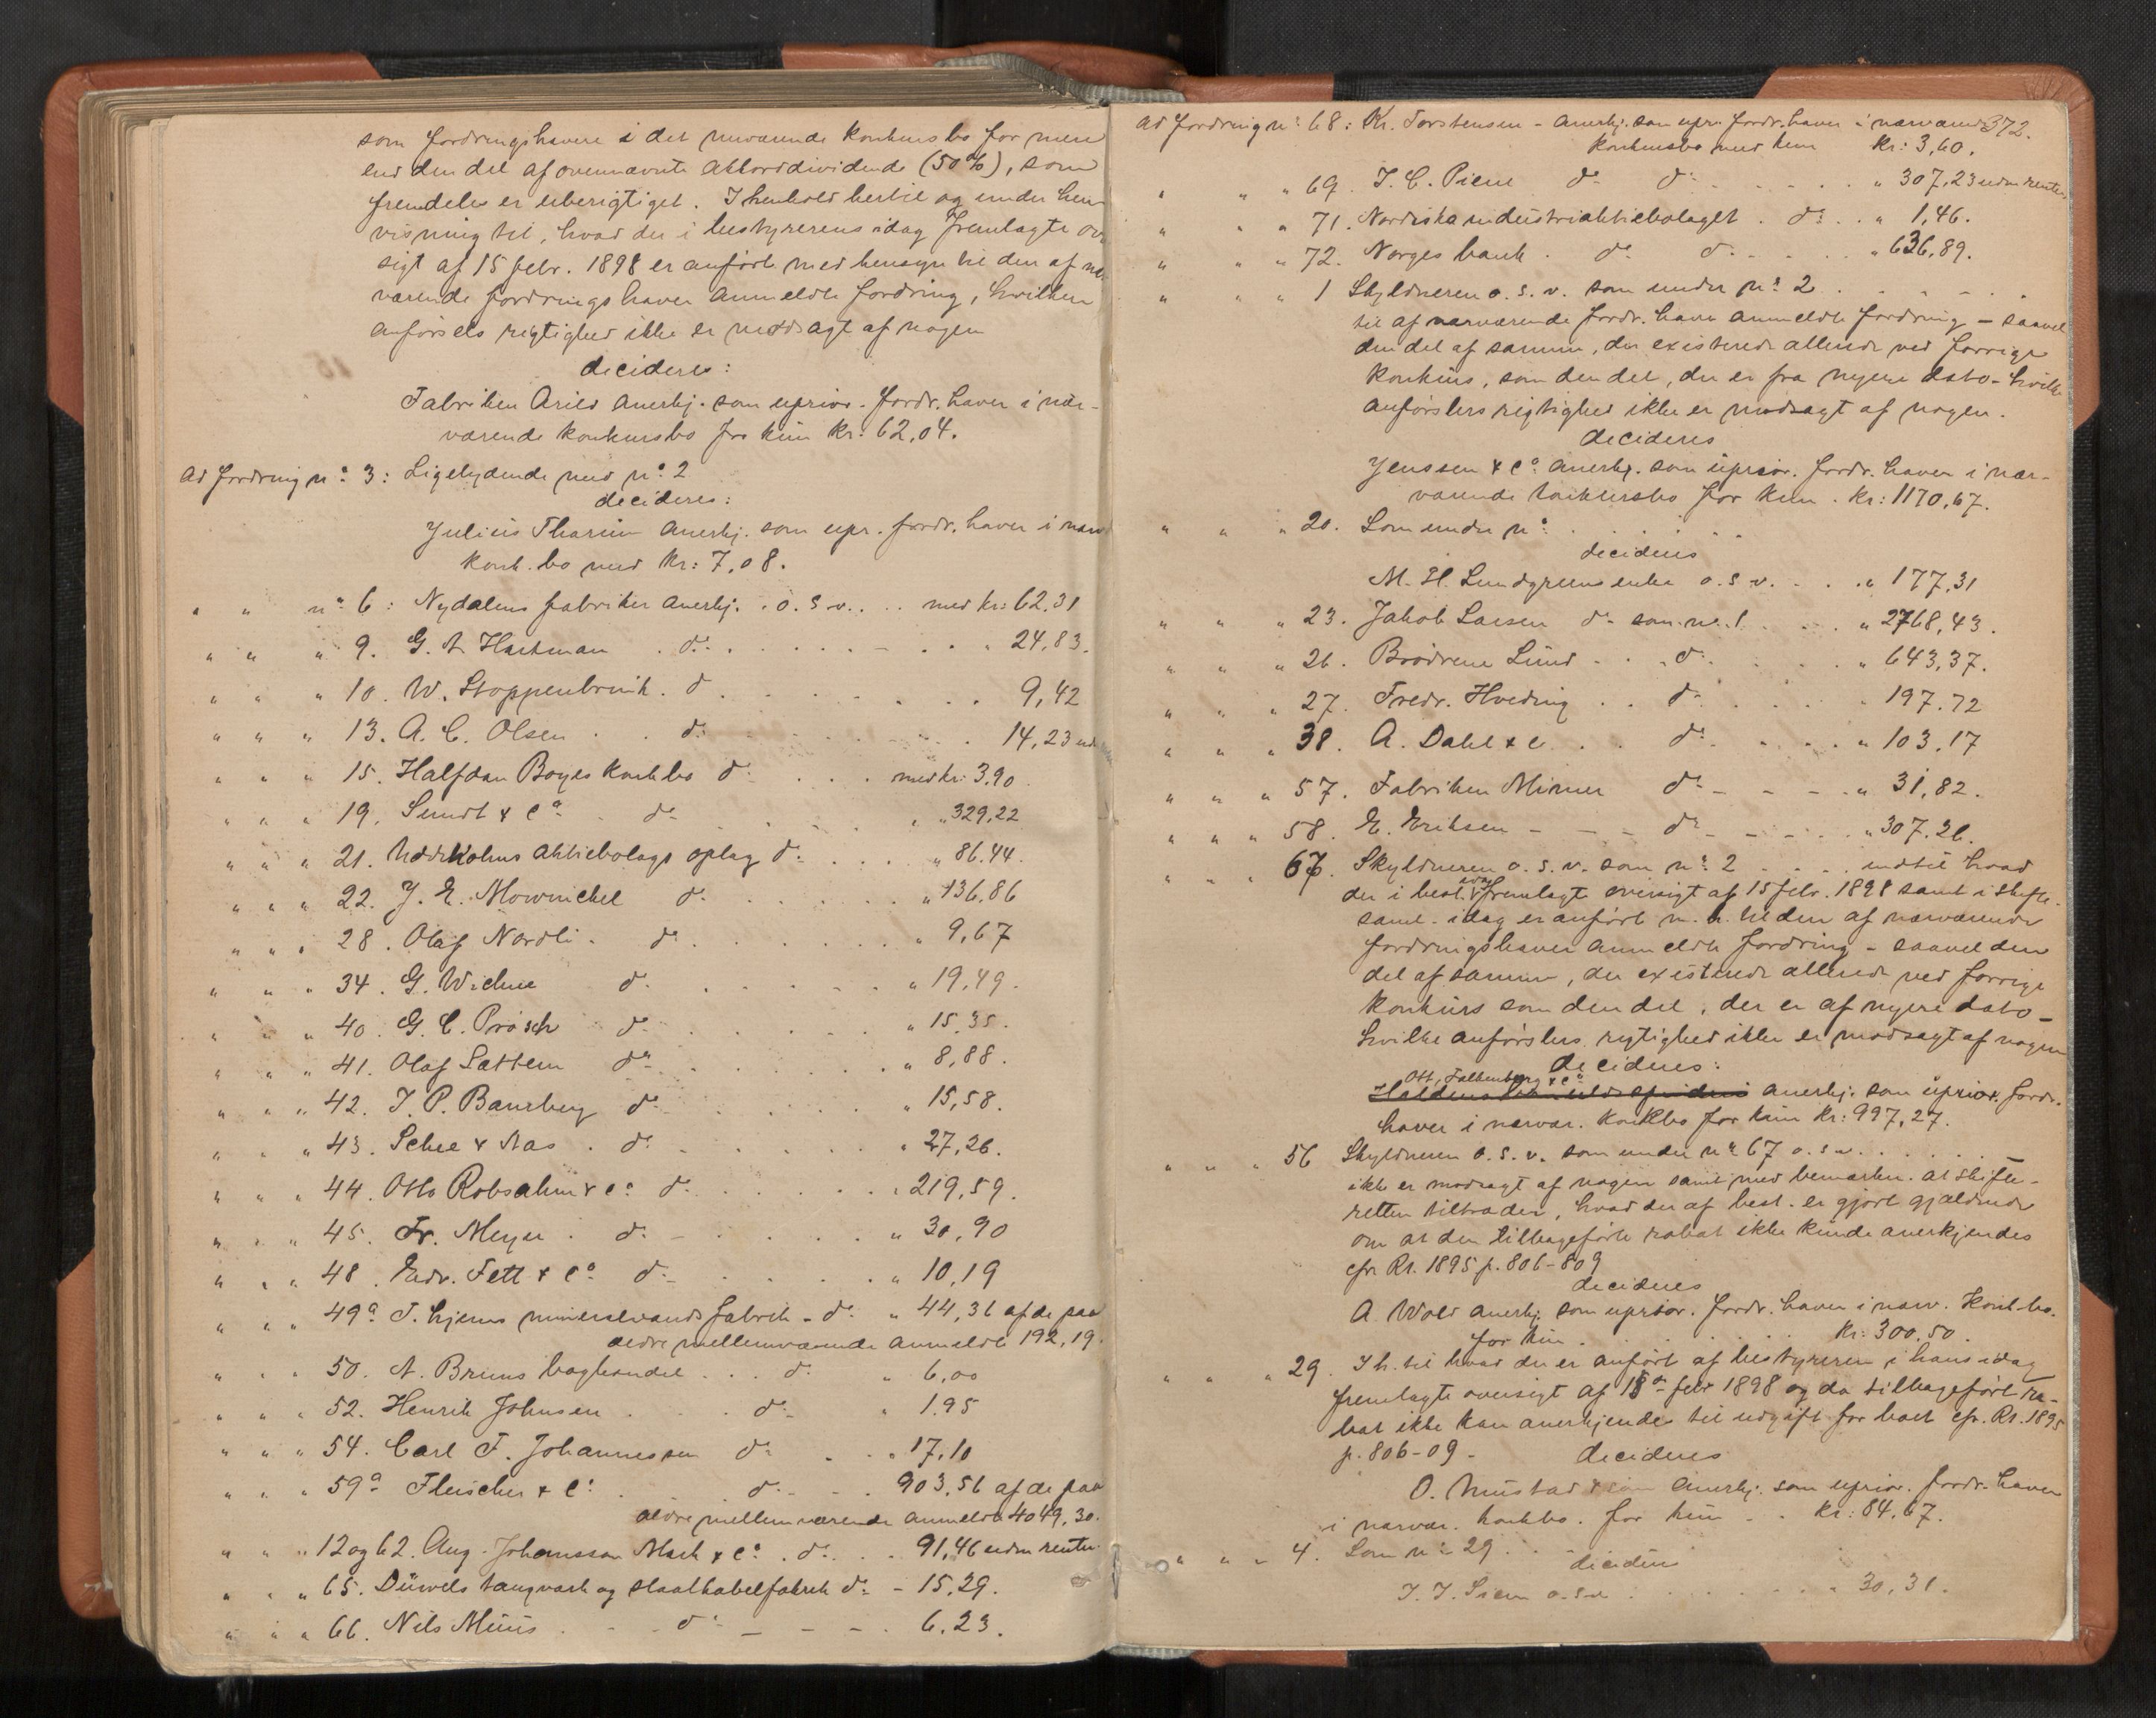 som fordringshavere i det nuværende konkursbo for mere
end den del af ovennævnte akkorddividende (50%), som
fremdeles er uberigtiget. I henhold hertil og under hen-
visning til, hvad der i bestyrerens idag fremlagte over
sigt af 15 febr. 1898 er anført med hensyn til den af nær
værende fordringshaver anmeldte fordring, hvilken
anførsels rigtighed ikke er modsagt af nogen
decideres:
Fabriken Arild anerkj. som uprior. fordr. haver i nær-
værende konkursbo for kun kr: 62,04.
Ad fordring nº 3: Ligelydende med nº 2
decideres:
Julius Tharum anerkj. som upr. fordr. haver i nærv
konk. bo med kr: 7,08.
" " nº 6: Nydalens fabriker anerkj. . o. s. v. . . . med kr: 62,31
" " " 9. G. A. Hartman . dº . . . . . . 24,83.
" " " 10. W. Stoppenbrink . dº . . . . . 9,42
" " " 13. A. C. Olsen . . dº . . . . . 14,23
" " " 15. Halfdan Boyes konkbo dº . . . med kr: 3,90
" " " 19. Sundt & Cº . dº . . . . " 329,22
" " " 21. aktiebolags oplag dº . . . " 86,44.
" " " 22. J. E. Mowinckel dº . . . . " 136,86
" " " 28. Olaf Nordli . dº . . . . . " 9,67
" " " 34. G. Wichne dº . . . . . " 19,49.
" " " 40. G. C. Prösch dº . . . . . " 15,35.
" " " 41. Olaf Sattem dº . . . . . " 8,88.
" " " 42. J. P. Banzberg dº . . . . . " 15,58.
" " " 43. Schee & Aas . dº . . . . . " 27,26.
" " " 44. Otto Robsahm & Cº dº . . . . . " 219,59.
" " " 45. Fr. Meyer . dº . . . . . " 30,90
" " " 48. Edv. Fett & Cº dº . . . . . " 10,19
" " " 49ª J. Hjerns mineralvandsfabrik - dº " 44,36 af de paa
ældre mellemværende anmeldte 192,19.
" " " 50. A. Bruns boghandel . . . dº " 6,00
" " " 52. Henrik Johnsen . . . dº " 1.95
" " " 54. Carl F. Johannessen dº . . " 17,10
" " " 59ª Fleischer & Cº . . dº . . . 903,56 af de paa
ældre mellemværende anmeldte 4049,30.
" " " 12 og 62. Aug. Johansson Mark & Cº . dº . . . 91,46 uden renter
" " " 65. Düwels taugværk og staalkabelfabrik dº - 15,29.
" " " 66. Nils Müüs . . . dº - - - . 6.23.
Ad fordring nº 68: Kr. Torstensen - anerkj. som upr. fordr. haver i nærværende 372.
konkursbo med kun kr: 3,60.
" " " 69. J. C. Piene dº dº . . . . . " 307,23 uden renter
" " " 71. Nordiska industriaktiebolaget . dº . . " 1,46.
" " " 72. Norges bank . dº dº . . . . " 636,89.
" " " 1 Skyldneren o. s. v. som under nº 2 . . . . . .
til af nærværende fordr. haver anmeldte fordring - saavel
den del af samme, der existerede allerede ved forrige
konkurs, som den del, der er fra nyere dato - hvilke
anførslers rigtighed ikke er modsagt af nogen.
decideres
Jenssen & Cº anerkj. som uprior. fordr. haver i nær-
værende konkursbo for kun . kr: 1170,67.
" " " 20. Som under nº . . . . . .
decideres
M. H. Lundgreens enke o. s. v. . . . " 177,31
" " " 23. Jakob Larsen dº som nr. 1 . . . " 2768,43.
" " " 26. Brødrene Lund . . . dº . . . . " 643,37.
" " " 27. Fredr. Hveding . . dº . . . . 197.72
" " " 38. A. Dahl & C. . . dº . . . . " 103,17
" " " 57. Fabriken Mimer dº - - - . " 31,82.
" " " 58. E. Eriksen - - - dº - - . . . " 307.26.
" " " 67. Skyldneren o. s. v. som nº 2 . . . . indtil hvad
der i best. idag fremlagte oversigt af 15 febr. 1898 samt i skifte-
saml. idag er anført m. h. til den af nærværende
fordringshaver anmeldte fordring - saavel den
del af samme, der existerede allerede ved forrige
konkurs som den del, der er af nyere dato -
hvilke anførslers rigtighed ikke er modsagt af nogen
decideres:
Ott. Falkenberg & Cº
anerkj. som uprior. fordr.
haver i nærvær. konkbo for kun kr: 997,27.
" " " 56 Skyldneren o. s. v. som under nº 67 o. s. v. . . . . .
ikke er modsagt af nogen samt med bemærkn. at skifte-
retten tiltræder, hvad der af best. er gjort gjældende
om at den tilbageførte rabat ikke kunde anerkjendes
cfr. Rt. 1895 p. 806-809
decideres
A. Wold anerkj. som uprior. fordr. haver i nærv. konk.bo.
for kun . . . . . . . kr: 300,50.
" " " 29. I h. til hvad der er anført af bestyreren i hans idag
fremlagte oversigt af 15de febr 1898 og da tilbageført ra-
bat ikke kan anerkjendes til udgift for boet cfr. Rt. 1895
p. 806-09 - decideres
O. Mustad & søn anerkj. som uprior. fordr. haver
i nærvær. konkbo. for kun . . kr: 84,67.
" " " 4. Som nº 29 . . .
decideres
J. J. Siem o. s. v. . . . . . . . 30,31.